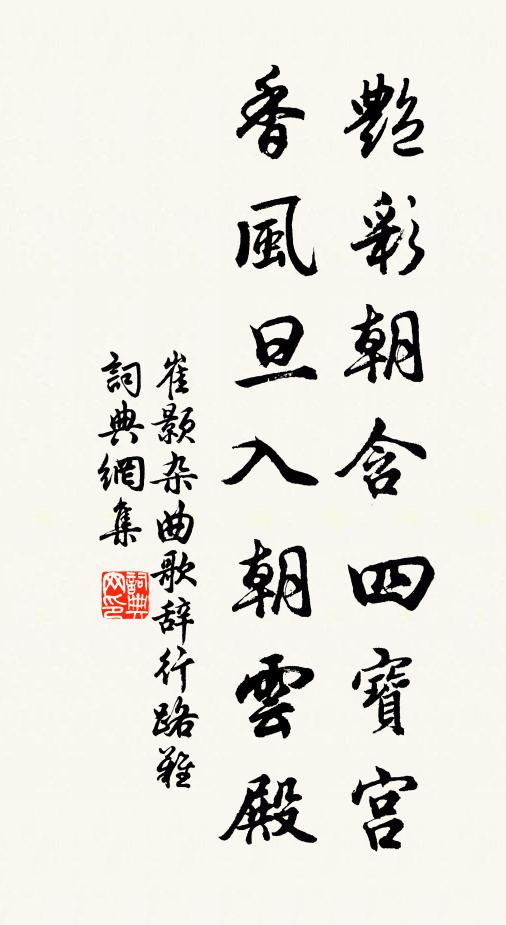 艷彩朝含四寶宮
香風旦入朝雲殿
崔顥杂曲歌辞行路難
詞典網集
詞典网印